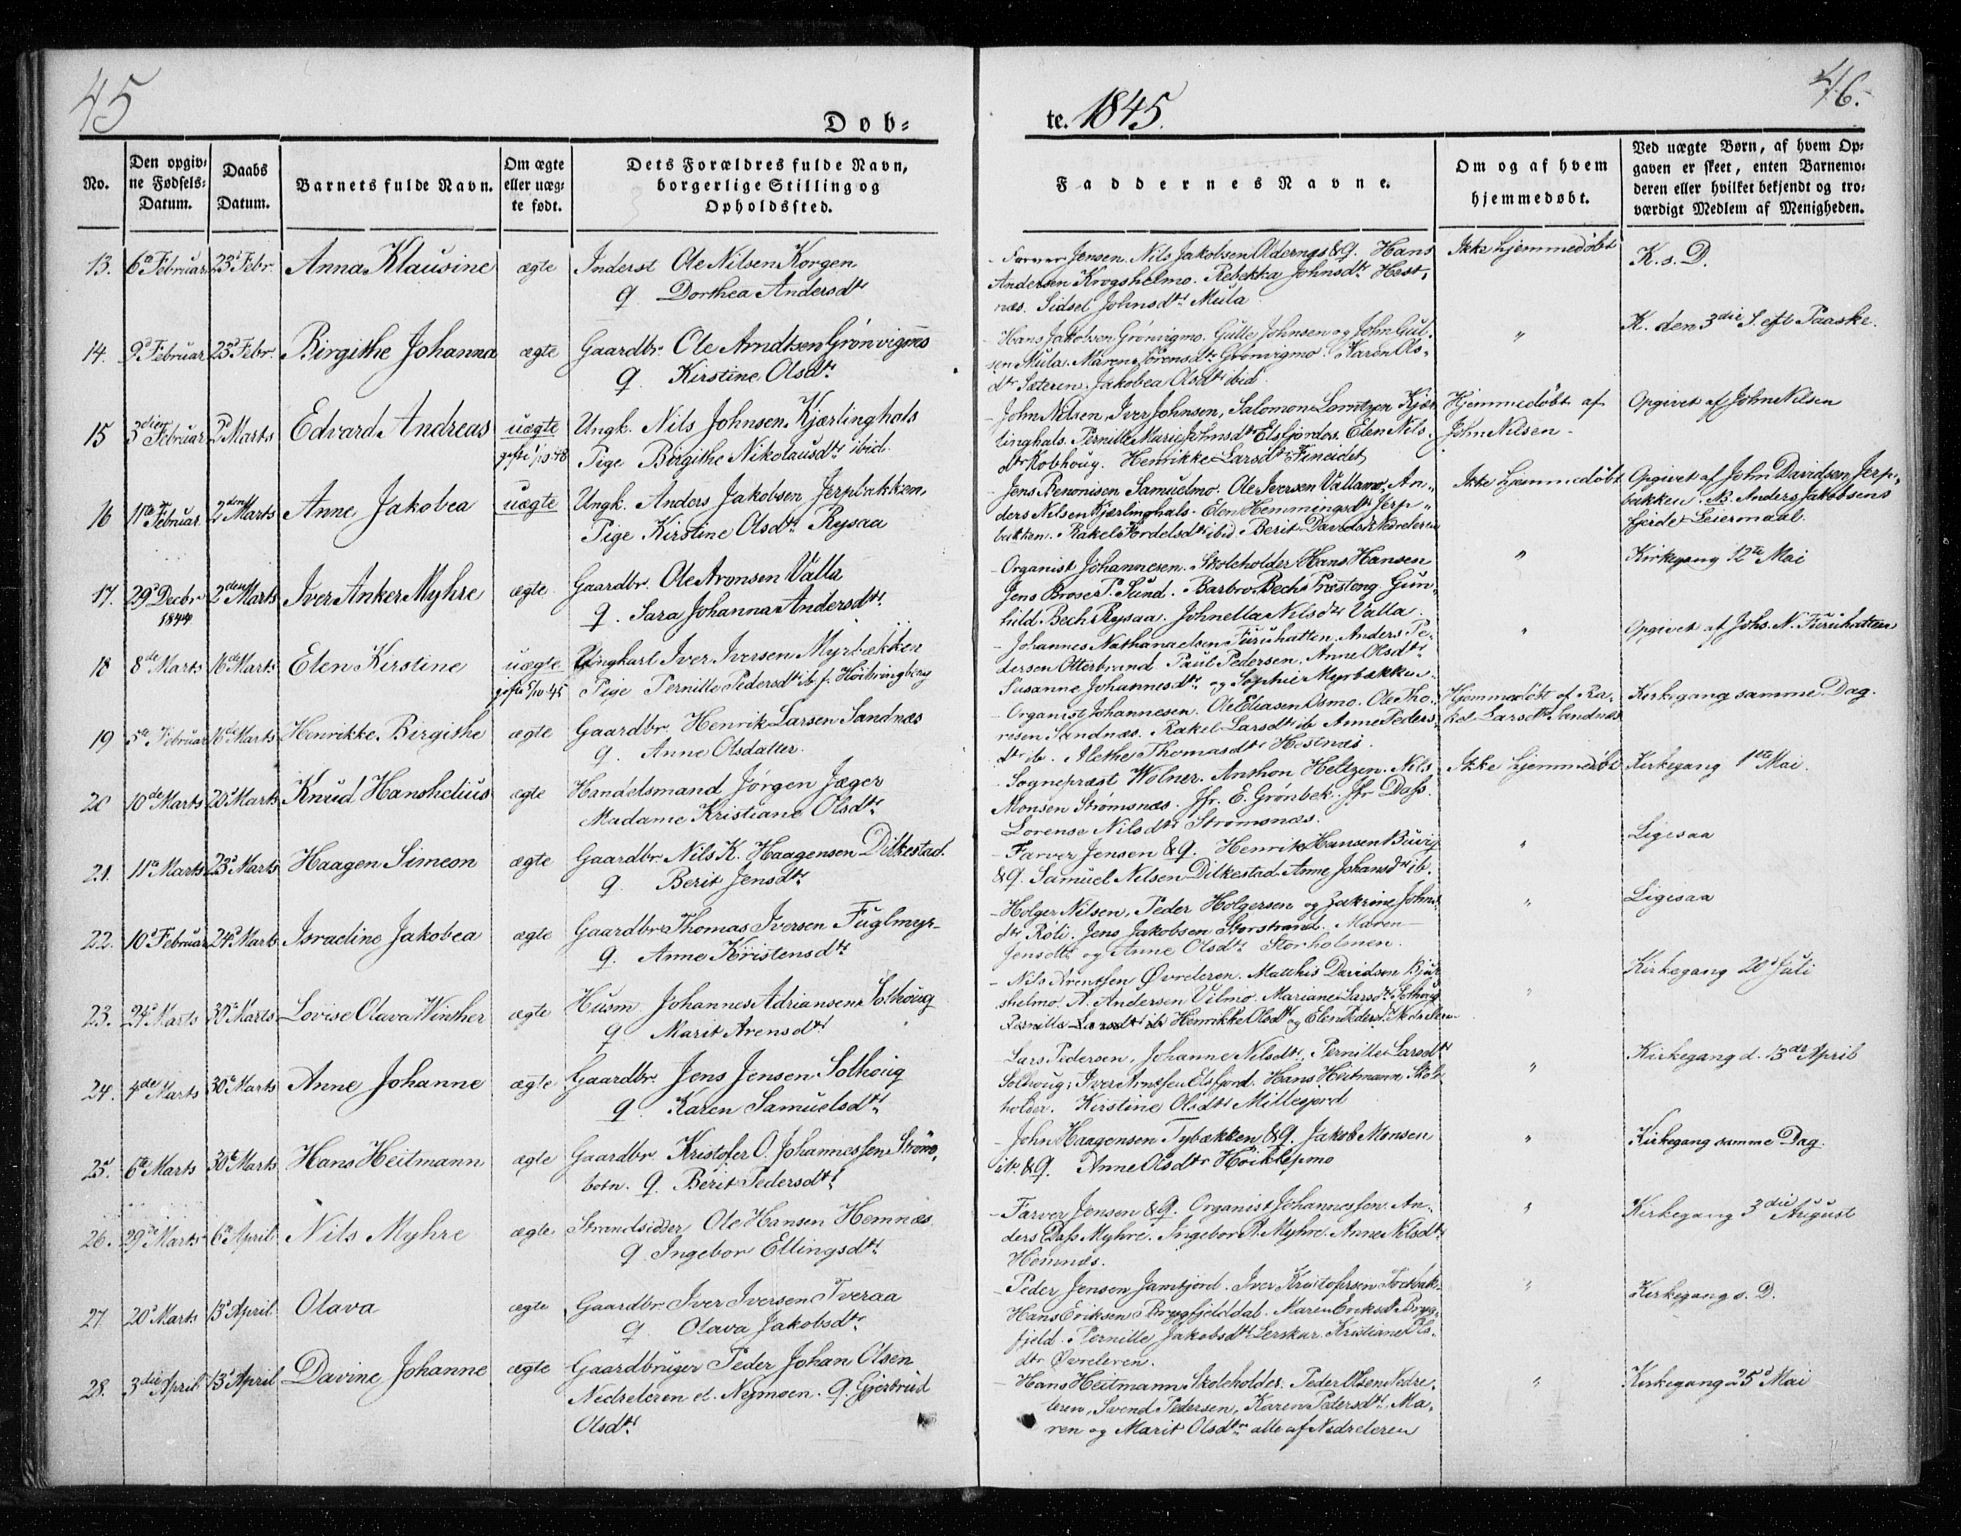 45
46.
Døb=
te. 1845.
No.
Den opgiv=
ne Fødsels=
Datum.
Daabs
Datum.
Barnets fulde Navn.
Om ægte
eller uæg=
te født.
Dets Forældres fulde Navn,
borgerlige Stilling og
Opholdssted.
Faddernes Navne.
Om og af hvem
hjemmedøbt.
Ved uægte Børn, af hvem Op=
gaven er skeet, enten Barnemo=
deren eller hvilket bekjendt og tro=
værdigt Medlem af Menigheden.
13. 6te Februar 23d Febr. Anna Klausine ægte Inderst Ole Nilsen Korgen
q. Dorthea Andersdtr
- Farver Jensen. Nils Jakobsen &q. Hans
Andersen Krogshelmo. Rebekka Johnsdtr Hest,
næs. Sidsel Johnsdtr Mula
Ikke hjemmedøbt
K. s. D.
14. 9d Februar 23d Febr. Birgithe Johanna ægte Gaardbr. Ole Arndtsen Grønvignes
q. Kirstine Olsdtr
- Hans Jakobsen Grønvigmo. Gulle Johnsen og John Gul-
sen Mula. Maren Sørensdtr Grønvigmo. Karen Ols-
dtr Sæteren. Jakobea Olsdtr ibid.
"
K. den 3die S. eft Paaske.
15 3die Februar 2d Marts Edvard Andreas uægte Ungk. Nils Johnsen Kjærlinghals
Pige Birgithe Nikolausdtr ibid.
- John Nilsen, Iver Johnsen, Salomon Lorntzen Kjær
linghals. Pernille Marie Johnsdtr Elsfjorden. Elen Nils-
dtr Kobhoug. Henrikke Larsdtr Fineidet
Hjemmedøbt af
John Nilsen -
Opgivet af John Nilsen
16 11te Februar 2den Marts Anne Jakobea uægte Ungk. Anders Jakobsen Jerpbakken,
Pige Kirstine Olsdtr Rysaa
- Jens Benonisen Samuelmo. Ole Iversen Vallamo, An-
ders Nilsen Kjærlinghals. Elen Hemmingsdtr Jerp-
bakken. Rakel Fordelsdtr ibid Berit Davidsdtr Nedreleren
Ikke hjemmedøbt
Opgivet af John Davidsen Jerp-
bakken. NB. Anders Jakobsens
fjerde Leiermaal.
17. 29d Decbr 1844 2den Marts Iver Anker Myhre ægte Gaardbr. Ole Aronsen Valla
q. Sara Johanna Andersdtr
- Organist Johannesen. Skoleholder Hans Hansen
Jens Broser P. Sund. Barbro Bech Præsteng Gun-
hild Bech Rysaa. Johnella Nilsdtr Valla.
"
Kirkegang 12te Mai
18 8de Marts 16de Marts Elen Kirstine uægte Ungkarl Iver Iversen Myrbækken
Pige Pernille Pedersdtr ib. f. Høibringberg
- Johannes Nathanaelsen Furuhatten, Anders Pe-
dersen Otterbrand Paul Pedersen. Anne Olsdtr
Susanne Johannesdtr og Sophie Myrbækken
"
Opgivet af Johs. N. Furuhatten
19 5te Februar 16de Marts Henrikke Birgithe ægte Gaardbr. Henrik Larsen Sandnæs
q. Anne Olsdatter
- Organist Johannesen. Ole Eliasen Osmo. Ole Tho-
resen Sandnæs. Rakel Larsdtr ib Anne Peders-
dtr ib. Alethe Thomasdtr Hestnæs.
Hjemmedøbt af Ra-
kel Larsdtr Sandnæs
Kirkegang samme Dag.
20 10de Marts 20d Marts Knud Hanshelius ægte Handelsmand Jørgen Jæger
Madame Kristiane Olsdtr
- Sognepræst Wolner. Anthon Heltzen. Nils
Monsen Strømsnæs. Jfr. E. Grønbek. Jfr Dass.
Lorense Nilsdtr Strømsnæs.
Ikke hjemmedøbt
Kirkegang 1ste Mai.
21. 11te Marts 23d Marts Haagen Simeon ægte Gaardbr. Nils K. Haagensen Dilkestad
q. Berit Jensdtr
- Farver Jensen &q. Henrik Hansen Buvig
&q. Samuel Nilsen Dilkestad Anne Johansdtr ib.
"
Ligesaa
22. 10de Februar 24d Marts Israeline Jakobea ægte Gaardbr Thomas Iversen Fuglmyr-
q. Anne Kristensdtr
- Holger Nilsen, Peder Holgersen og Zakrine Johns
dtr Røli. Jens Jakobsen Storstrand. Maren
Jensdtr og Anne Olsdtr Storholmen.
"
Ligesaa
23. 24d Marts 30te Marts Lovise Olava Winther ægte Husm Johannes Adriansen Solhoug
q Marit Arensdtr
- Nils Arentsen Øvreleren. Matthis Davidsen Bjur
shelmo. A. Andersen Vilmo. Mariane Larsdtr Solhoug
Pernille Larsdtr ib Henrikke Olsdtr og Elen Pedersd. Nedreleren
"
Kirkegang 20d Juli
24. 4de Marts 30te Marts Anne Johanne ægte Gaardbr. Jens Jensen Solhoug
q. Karen Samuelsdtr
- Lars Pedersen, Johanne Nilsdtr, Pernille Larsdtr
Solhoug; Iver Arntsen Elsfjord. Hans Heitmann Skole
holder. Kirstine Olsdtr Millesjord
"
Kirkegang d. 13de April
25. 6te Marts 30te Marts Hans Heitmann ægte Gaardbr. Kristofer O. Johannessen Strøm,
botn. q. Berit Pedersdtr
- John Haagensen Tybækken &q. Jakob Monsen
ib. &q. Anne Olsdtr Høiklepmo
"
Kirkegang samme Dag.
26. 29de Marts 6te April Nils Myhre ægte Strandsidder Ole Hansen Hemnæs.
q. Ingebor Ellingsdtr
- Farver Jensen &q. Organist Johannessen. An-
ders Dass Myhre. Ingebor A. Myhre. Anne Nilsdtr
Hemnæs.
"
Kirkegang 3die August
27 20d Marts 13d April Olava ægte Gaardbr Iver Iversen Tveraa
q Olava Jakobsdtr
- Peder Jensen Jamtjord. Iver Kristofersen
Hans Eriksen Brygfjelddal. Maren Eriksdtr Bryg-
fjeld. Pernille Jakobsdtr Lerskar. Kristiane Ols-
dtr Øvreleren.
"
Kirkegang s. D.
28. 3die April 13d April Davine Johanne ægte Gaardbruger Peder Johan Olsen
Nedreleren el. Nymoen. q. Gjertrud
Olsdtr
- Hans Heitmann Skoleholder. Peder Olsen Nedre
leren, Svend Pedersen, Karen Pedersdtr. Ma-
ren og Marit Olsdtr alle af Nedreleren
"
Kirkegang 25d Mai